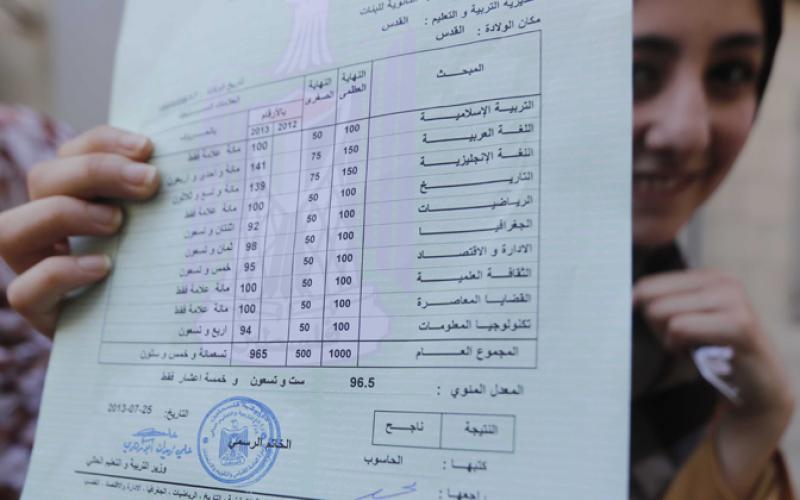 للبنات
مديرية التربية و التعليم : القدس
مكان الولادة : القدس
المبحث النهاية العظمى النهاية الصغرى
بالأرقام
2012 2013
التربية الإسلامية 100 50 100 مائة علامة فقط
اللغة العربية 150 75 141 مائة و احدى و اربعون
اللغة الإنجليزية 150 75 139 مائة و تسع و ثلاثون
التاريخ 100 50 100 مائة علامة فقط
الرياضيات 100 50 92 اثنتان و تسعون
الجغرافيا 100 50 98 ثمان و تسعون
الادارة و الاقتصاد 100 50 95 خمس و تسعون
الثقافة العلمية 100 50 100 مائة علامة فقط
القضايا المعاصرة 100 50 100 مائة علامة فقط
تكنولوجيا المعلومات 100 50 94 اربع و تسعون
المجموع العام 1000 500 965 تسعمائة و خمس و ستون
المعدل المئوي : 96.5 ست و تسعون و خمسة اعشار فقط
النتيجة ناجح
التاريخ: 25-07-2013
الخاتم الرسمي
كتبها : الحاسوب
وزير التربية و التعليم العالي
راجعها :
التاريخ ، الرياضيات ، الجغرافيا ، الادارة والاقتصاد ، القصص